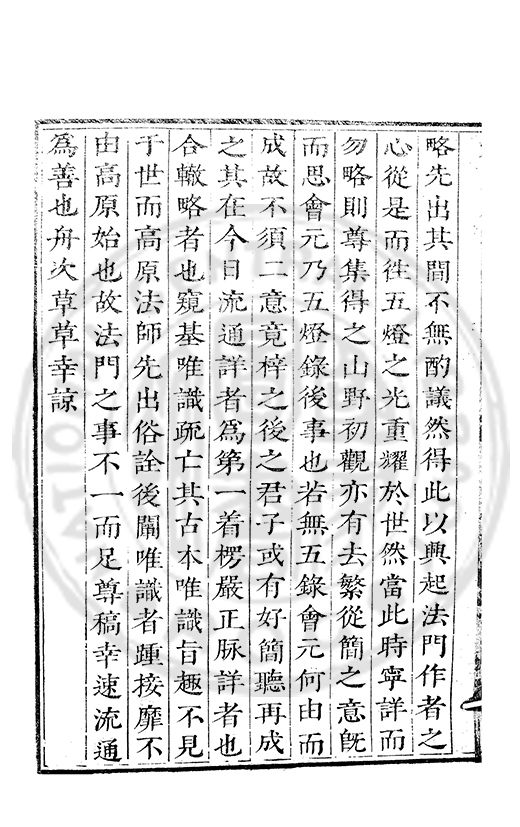 略先出其間不無酌議然得此以興起法門作者之
心從是而徃五燈之光重耀於世然當此時寧詳而
勿略則尊集得之山野初觀亦有去繁從簡之意旣
而思會元乃五燈錄後事也若無五錄會元何由而
成故不須二意竟梓之後之君子或有好簡聽再成
之其在今日流通詳者爲第一着楞嚴正脉詳者也
合轍略者也窺基唯識疏亡其古本唯識旨趣不見
于世而高原法師先出俗詮後闡唯識者踵接靡不
由高原始也故法門之事不一而足尊稿幸速流通
爲善也舟次草草幸諒